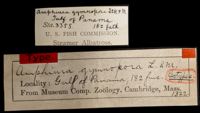 Amphiura gymnopora L & M
Gulf of Panama
Sta. 3355. 182 fath.
U. S. FISH COMMISSION.
Steamer Albatross.
TYPE
Amphiura gymnopora L. & M.
Locality: Gulf of Panama, 182 fms. Cotypes
From Museum Comp. Zoology, Cambridge, Mass.